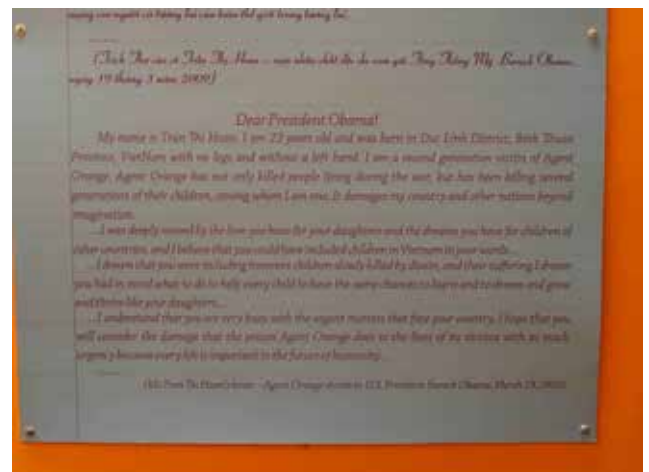 mạng con người có tương lai của toàn thế giới trong tương lai.
(Trích Thư của cô Trần Thị Hoan – nạn nhân chất độc da cam gửi Tổng Thống Mỹ Barack Obama,
ngày 19 tháng 3 năm 2009)
Dear President Obama!
My name is Tran Thi Hoan. I am 23 years old and was born in Duc Linh District, Binh Thuan
Province, VietNam with no legs and without a left hand. I am a second generation victim of Agent
Orange. Agent Orange has not only killed people living during the war, but has been killing several
generations of their children, among whom I am one. It damages my country and other nations beyond
imagination.
...I was deeply moved by the love you have for your daughters and the dreams you have for children of
other countries, and I believe that you could have included children in Vietnam in your words...
...I dream that you were including innocent children slowly killed by dioxin, and their suffering. I dream
you had in mind what to do to help every child to have the same chances to learn and to dream and grow
and thrive like your daughters...
...I understand that you are very busy with the urgent matters that face your country. I hope that you
will consider the damage that the poison Agent Orange does to the lives of its victims with as much
urgency because every life is important to the future of humanity...
Tran Thi Hoan's letter - Agent Orange victim to U.S. President Barack Obama, March 19, 2009)